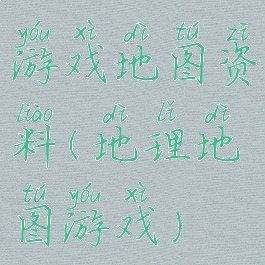 yóu xì dì tú zī
游戏地图资
liào dì lǐ dì
料(地理地
tú yóu xì
图游戏)